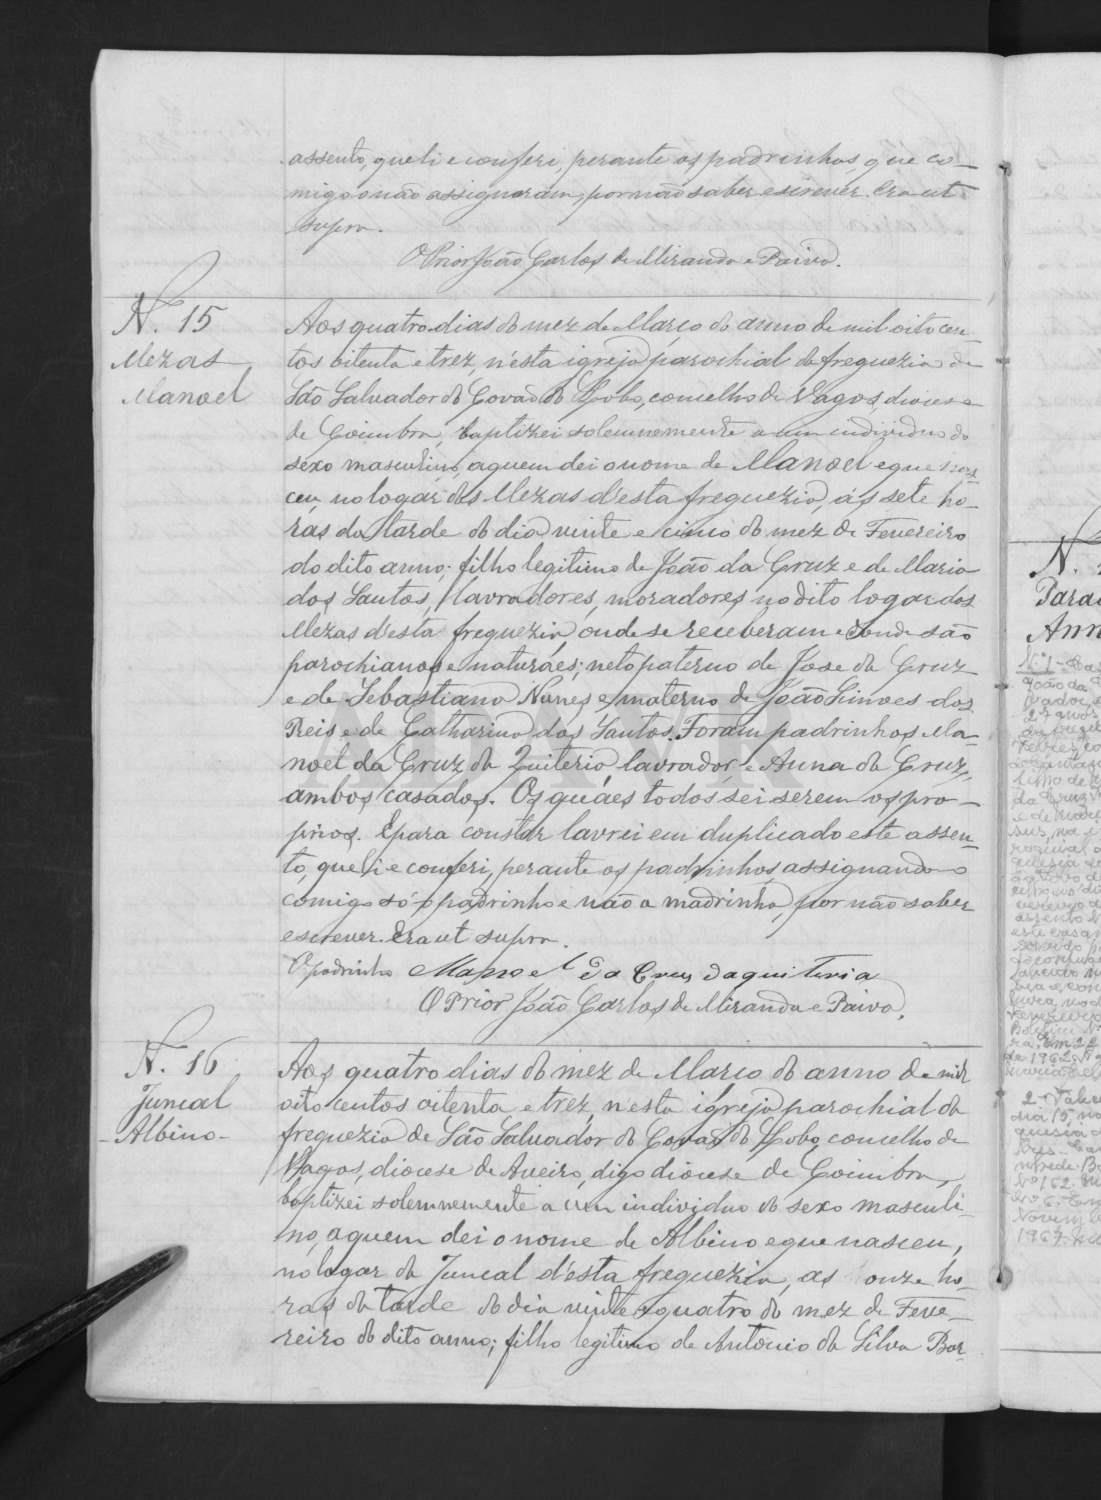 assento, que li e conferi, perante os padrinhos, que co-
migo o não assignaram, por não saber escrever. Era ut
supra.
O Prior João Carlos de Miranda e Paiva.
N. 15
Mezas
Manoel
Aos quatro dias do mez de Março do anno de mil oito cen-
tos oitenta e trez, n'esta igreja parochial da freguezia de
São Salvador do Covão do Lobo, concelho de Vagos, diocese
de Coimbra, baptizei solemnemente a um individuo do
sexo masculino, a quem dei o nome de Manoel e que nas-
ceu, no logar das Mezas d'esta freguezia, ás sete ho-
ras da tarde do dia vinte e cinco do mez de Fevereiro
do dito anno; filho legitimo de João da Cruz e de Maria
dos Santos, lavradores, moradores no dito logar das
Mezas d'esta freguezia, onde se receberam e donde são
parochianos e naturáes; neto paterno de Jose da Cruz
e de Sebastiana Nunes e materno de João Simoes dos
Reis e de Catharina dos Santos. Foram padrinhos Ma-
noel da Cruz da Quiteria, lavrador, e Anna da Cruz,
ambos casados. Os quáes todos sei serem os pro-
prios. E para constar lavrei em duplicado este assen-
to, que li e conferi, perante os padrinhos, assignando o
comigo só o padrinho e não a madrinha, por não saber
escrever. Era ut supra.
O padrinho Manoel da Cruz daquiteria
O Prior João Carlos de Miranda e Paiva.
N. 16
Juncal
Albino
Aos quatro dias do mez de Março do anno de mil
oito centos oitenta e trez, n'esta igreja parochial da
freguezia de São Salvador do Covão do Lobo, concelho de
Vagos, diocese de Aveiro, digo diocese de Coimbra,
baptizei solemnemente a um individuo do sexo masculi-
no, a quem dei o nome de Albino e que nasceu,
no logar do Juncal d'esta freguezia, as onze ho-
ras da tarde do dia vinte e quatro do mez de Feve-
reiro do dito anno; filho legitimo de Antonio da Silva Bar-
N.
Ann